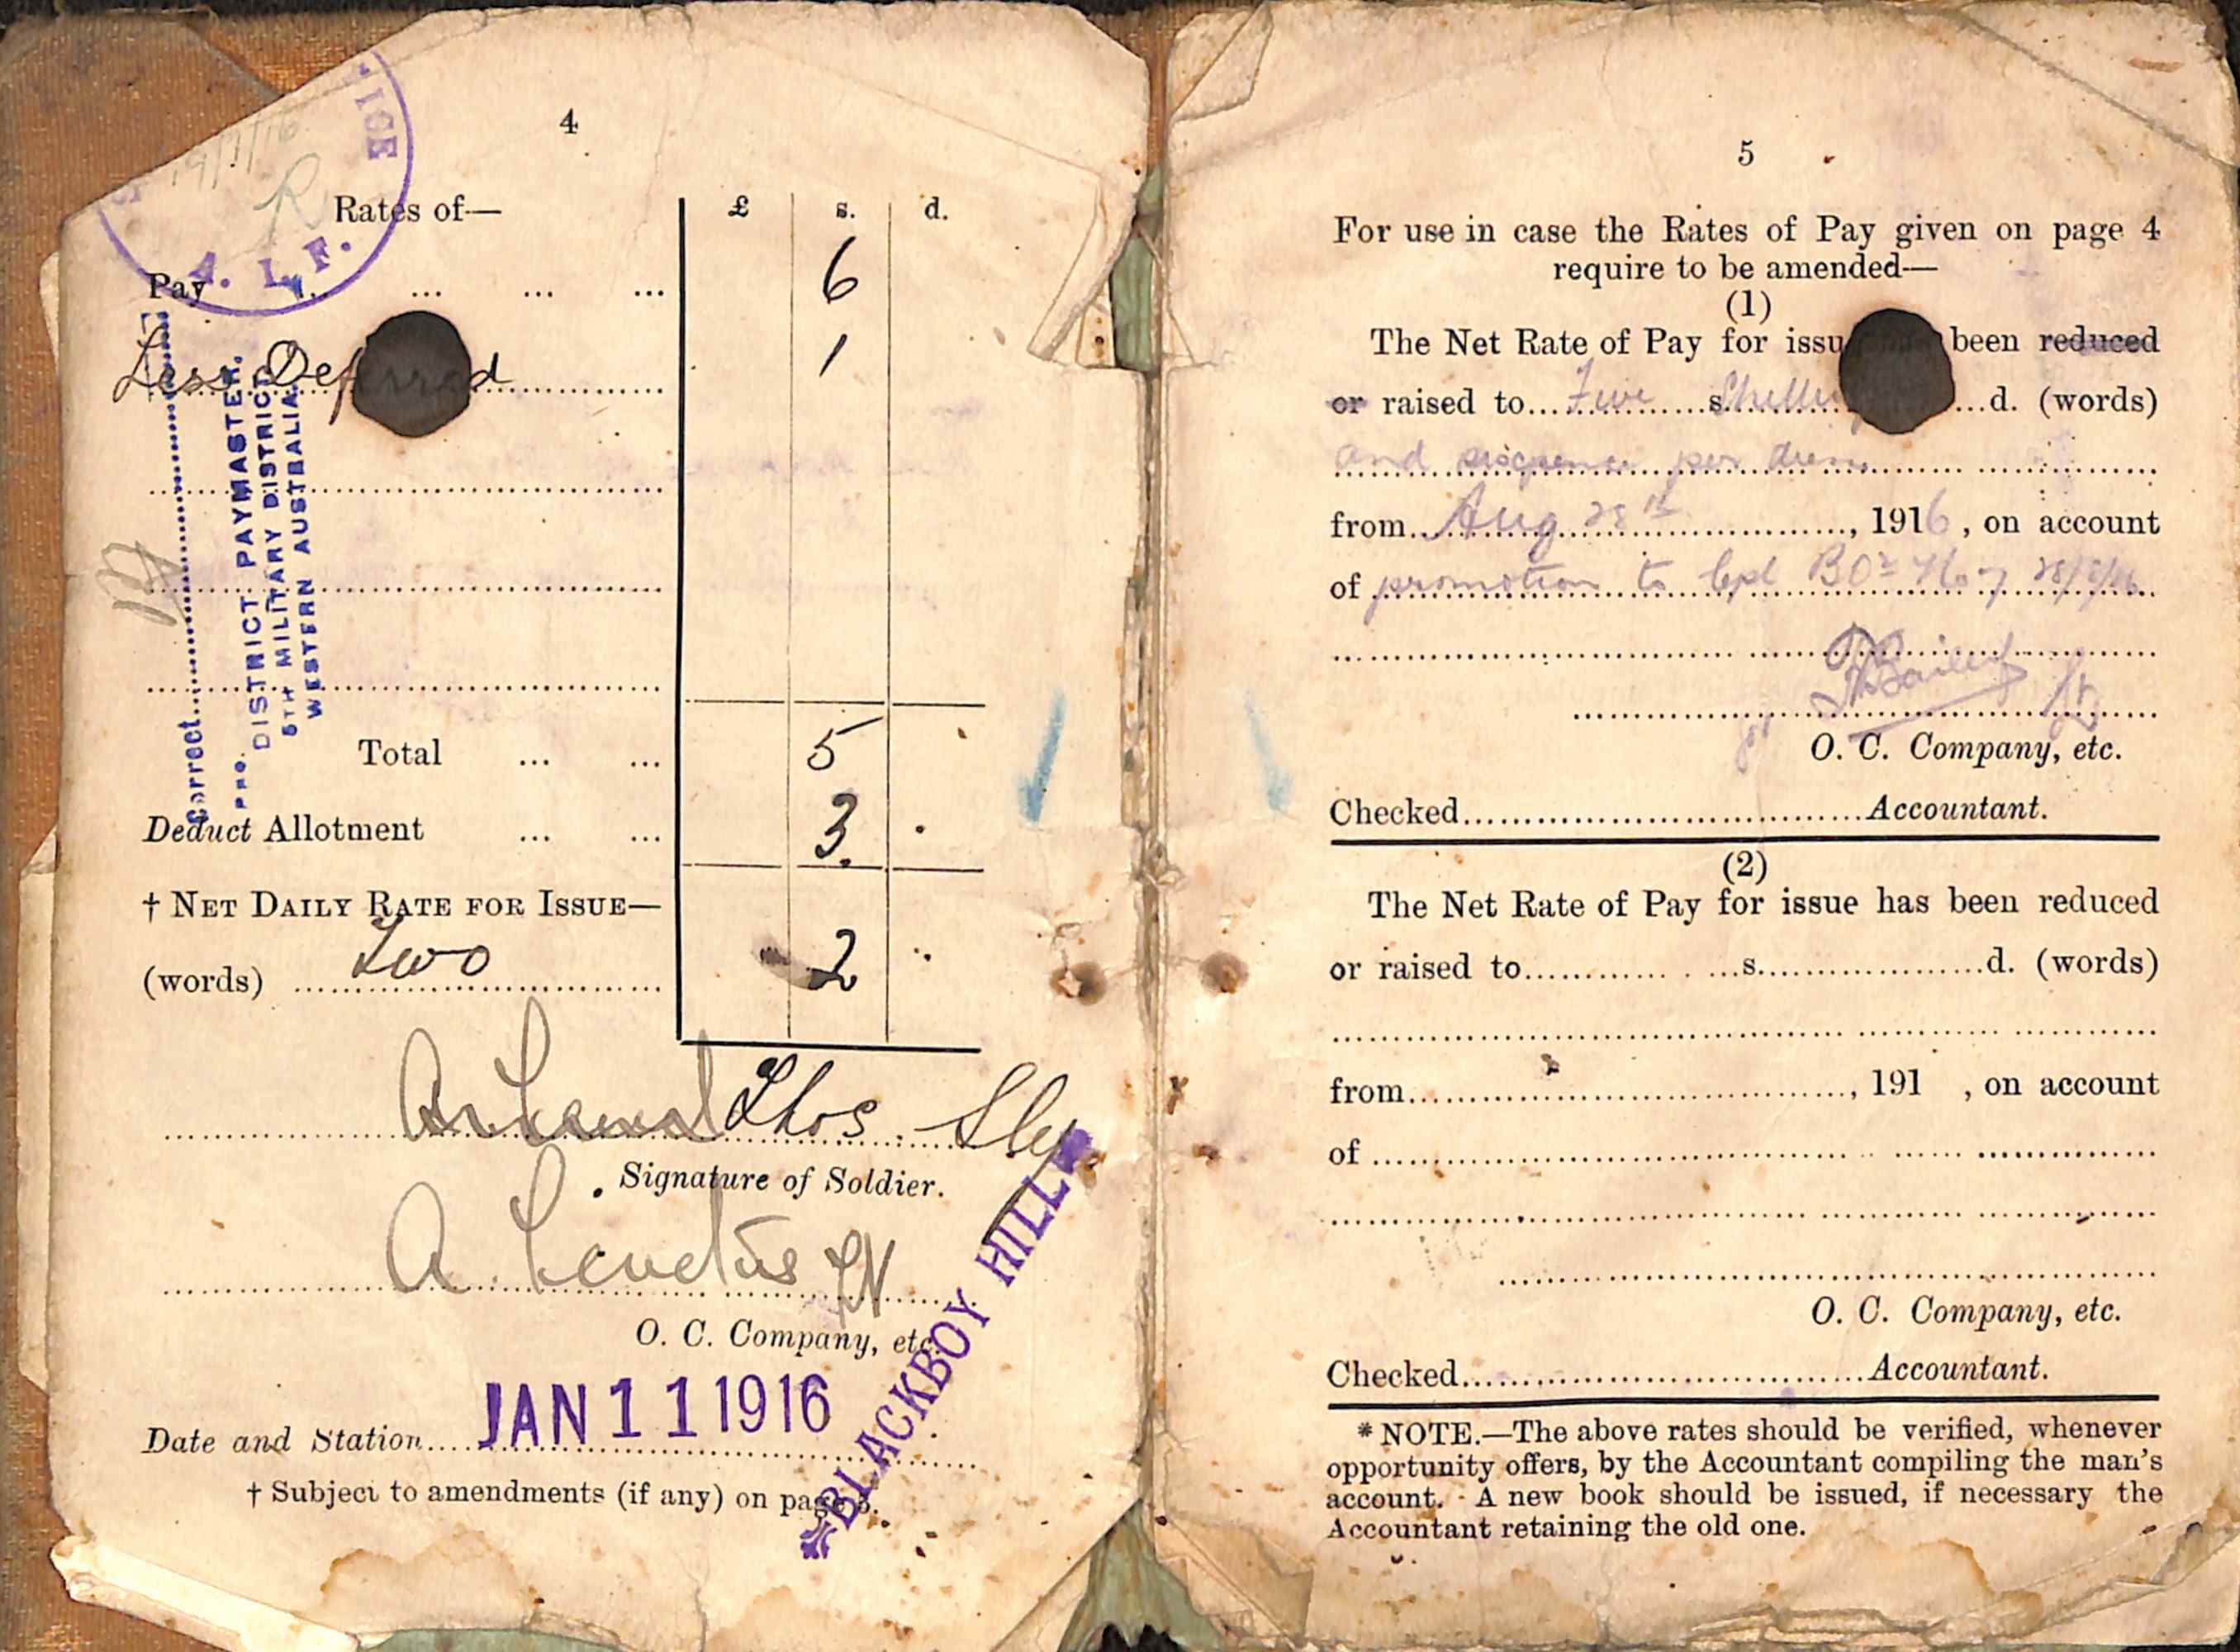 4
19/1/16
R
ICE
A. I. F.
Rates of—
£ s. d.
Pay ... ... ... ... 6
Less Deferred 1
Correct
DISTRICT PAYMASTER.
DISTRICT
5TH MILITARY DISTRICT
WESTERN AUSTRALIA
Total ... ... 5
Deduct Allotment ... ... 3 .
† NET DAILY RATE FOR ISSUE—
(words) Two 2
Thos. Sly
Signature of Soldier.
A.
O. C. Company, etc.
Date and Station JAN 11 1916
BLACKBOY HILL
† Subject to amendments (if any) on page 5.
5
For use in case the Rates of Pay given on page 4
require to be amended—
(1)
The Net Rate of Pay for issue has been reduced
or raised to... Five s. Shillings d. (words)
and sixpence per diem
from Aug 28th, 1916, on account
of promotion to Cpl 28/8/16
O. C. Company, etc.
Checked Accountant.
(2)
The Net Rate of Pay for issue has been reduced
or raised to s. d. (words)
from , 191 , on account
of
O. C. Company, etc.
Checked Accountant.
* NOTE.—The above rates should be verified, whenever
opportunity offers, by the Accountant compiling the man's
account. A new book should be issued, if necessary the
Accountant retaining the old one.